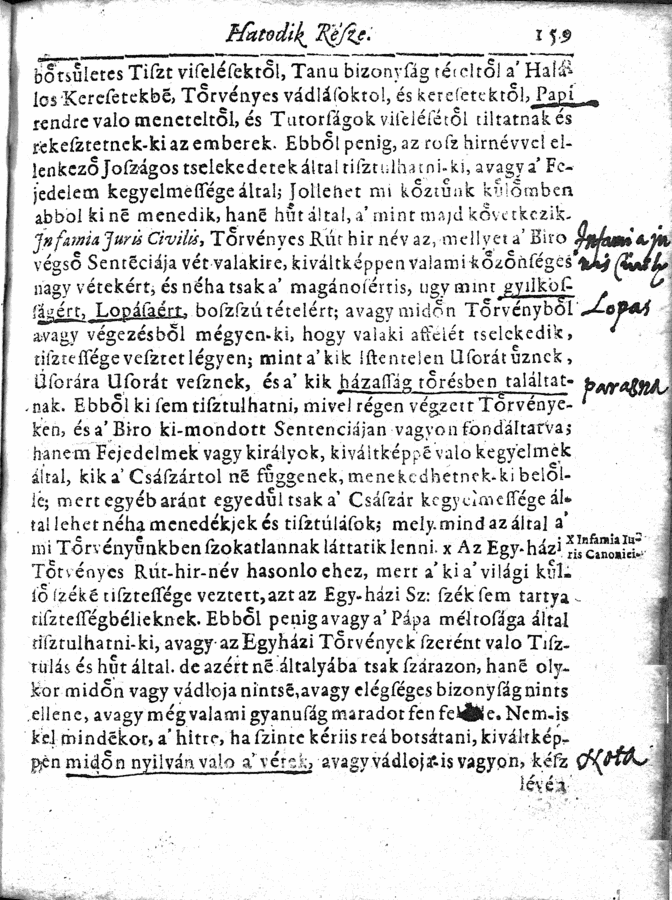 Hatodik Réſze. 159
bőtsűletes Tiſzt viſelésektől, Tanu bizonyſág tételtől a' Halá-
los Keresetekbē, Tőrvényes vádláſoktol, és kereſetektől, Papi
rendre valo meneteltől, és Tutorſágok viſelésétől tiltatnak és
rekeſztetnek-ki az emberek. Ebből penig, az rosz hirnévvel el-
lenkező Joſzágos tselekedetek által tiſztulhatni-ki, avagy a' Fe-
jedelem kegyelmeſſége által; Jollehet mi kőztűnk kűlőmben
abbol ki nē menedik, hanē hűt által, a' mint majd kővetkezik.
Infamia Juris Civilis, Tőrvényes Rút hir név az, mellyet a' Biro Infamia ju
végső Sentēciája vét valakire, kiváltképpen valami kőzőnséges
nagy vétekért; és néha tsak a' magánosértis, ugy mint gyilkoſ-
ságért, Lopáſaért, boszszú tételért; avagy midőn Tőrvényből Lopas
avagy végezésből mégyen-ki, hogy valaki affélét tselekedik,
tiſzteſſége vesztet légyen; mint a' kik Iſtentelen Uſorát űznek,
Uſorára Uſorát veſznek, és a' kik házaſſág tőrésben találtat- parasna
nak. Ebből ki ſem tiſztulhatni, mivel régen végzett Tőrvénye-
ken, és a' Biro ki-mondott Sentenciáján vagyon fondáltatva;
hanem Fejedelmek vagy királyok, kiváltképpē valo kegyelmek
által, kik a' Cſáſzártol nē fűggenek, menekedhetnek-ki belől-
le; mert egyéb aránt egyedűl tsak a' Cſáſzár kegyelmeſſége ál-
tal lehet néha menedékjek és tiſztúláſok; mely mind az által a'
mi Tőrvényűnkben szokatlannak láttatik lenni. x Az Egy-házi X Infamia Iu-
ris Canonici-
Tőrvényes Rút-hir-név hasonlo ehez, mert a' ki a' világi kűl-
ſő ſzéké tiſzteſſége veztett, azt az Egy-házi Sz: szék ſem tartya
tiſzteſſégbélieknek. Ebből penig avagy a' Pápa méltosága által
tiſztulhatni-ki, avagy az Egyházi Tőrvények szerént valo Tiſz-
túlás és hűt által. de azért nē általyába tsak szárazon, hanē oly-
kor midőn vagy vádloja nintsē, avagy elégséges bizonyſág nints
ellene, avagy még valami gyanuſág maradot fen Nem-is
kel mindēkor, a' hitre, ha szinte kériis reá botsátani, kiváltkép-
pen midőn nyilván valo a' vétek, avagy vádloja is vagyon, kész Nota
lévén